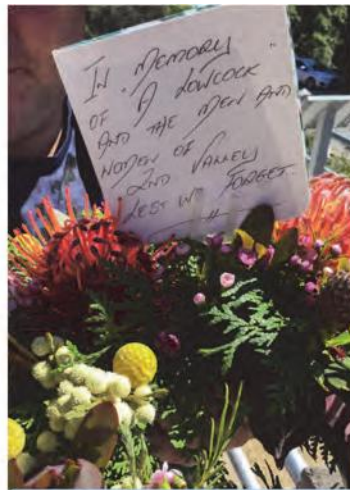 IN MEMORY
OF A LOWCOCK
AND THE MEN AND
WOMEN OF
2ND
LEST WE FORGET